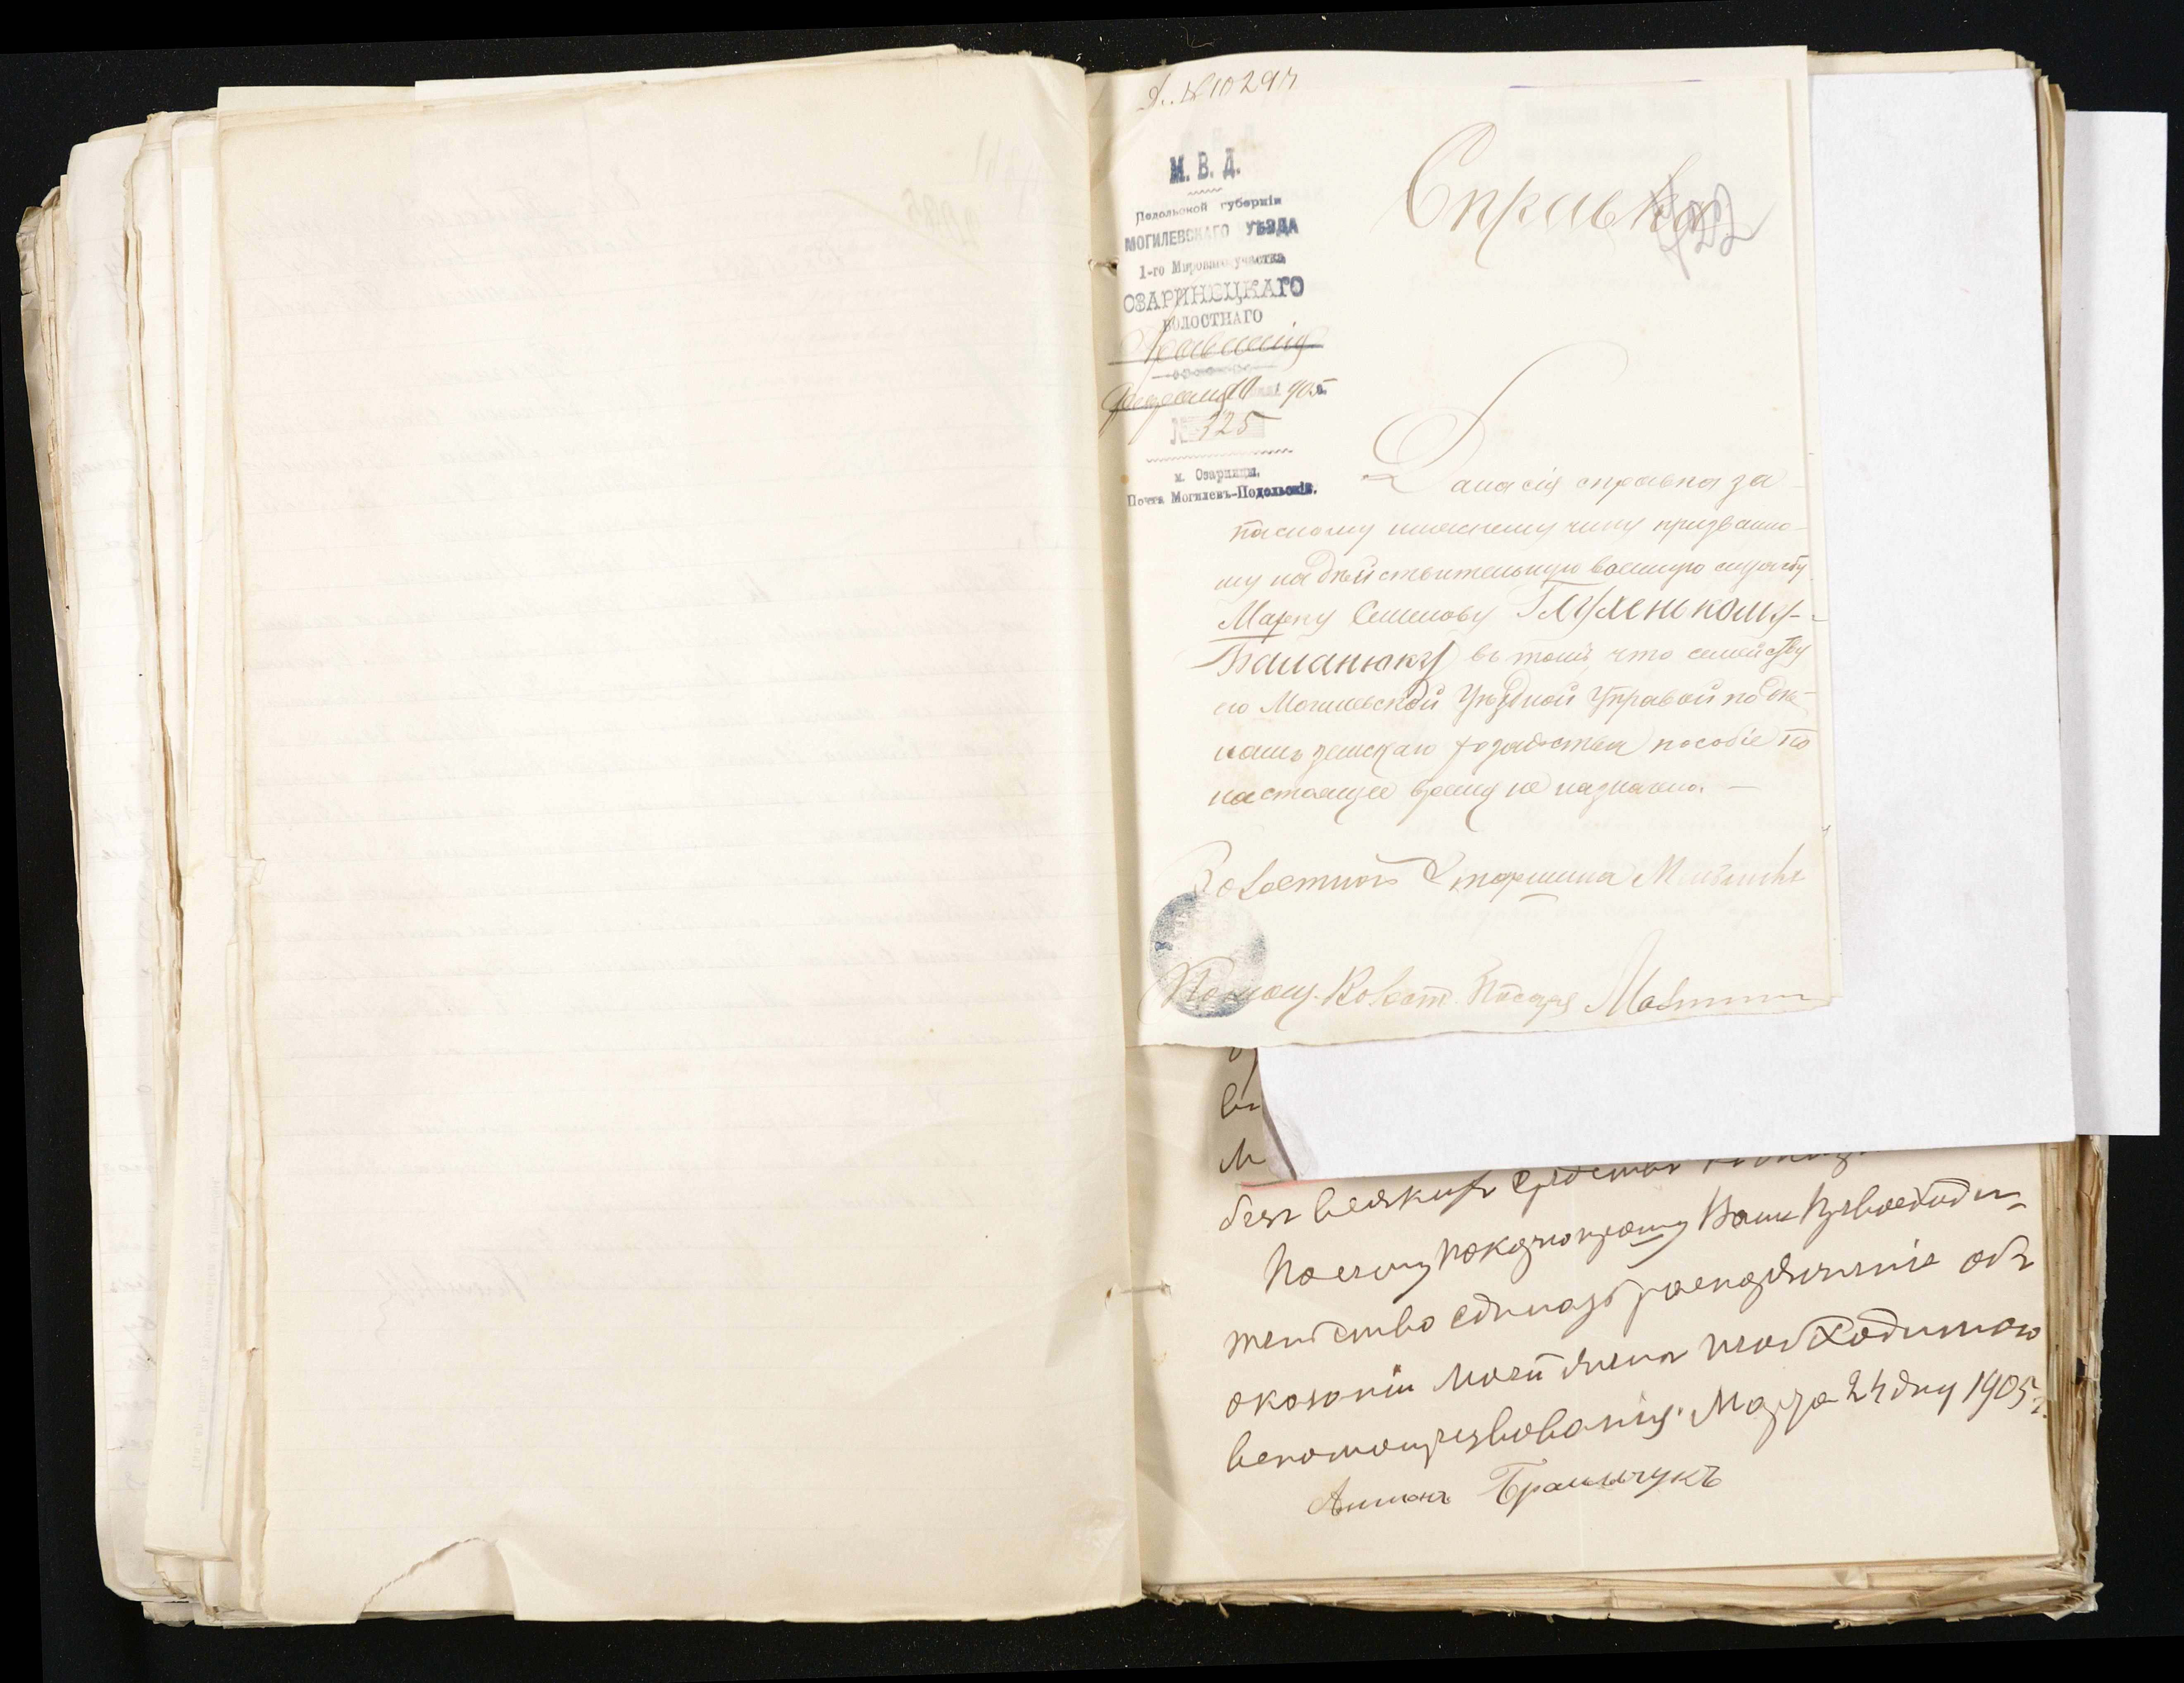 № 10294
М. В. Д.
Подольской губерніи
МОГИЛЕВСКАГО УѢЗДА
1-го Мирового участка
ОЗАРИНЕЦКАГО
ВОЛОСТНАГО
Правленія
Февраля 10 дня 1905 г.
№ 325
м. Озаринцы.
Почта Могилевъ-Подольскій.
Справка
122
Дана сія справка за-
пасному нижнему чину призванно-
му на дѣйствительную военную службу
Марку Семенову Глухенькому-
Баланюку въ томъ, что семейству
его Могилевской Уѣздной Управой по дѣ-
ламъ земскаго хозяйства пособіе по
настоящее время не назначено. —
Волостной Старшина
Помощ. Волост. Писаря
въ
М
безъ всякихъ средствъ
Посему покорно прошу Ваше Превосходи-
тельство сдѣлать распоряженіе объ
оказаніи моей необходимаго
вспомоществованія. Марта 24 дня 1905 г.
Антонъ